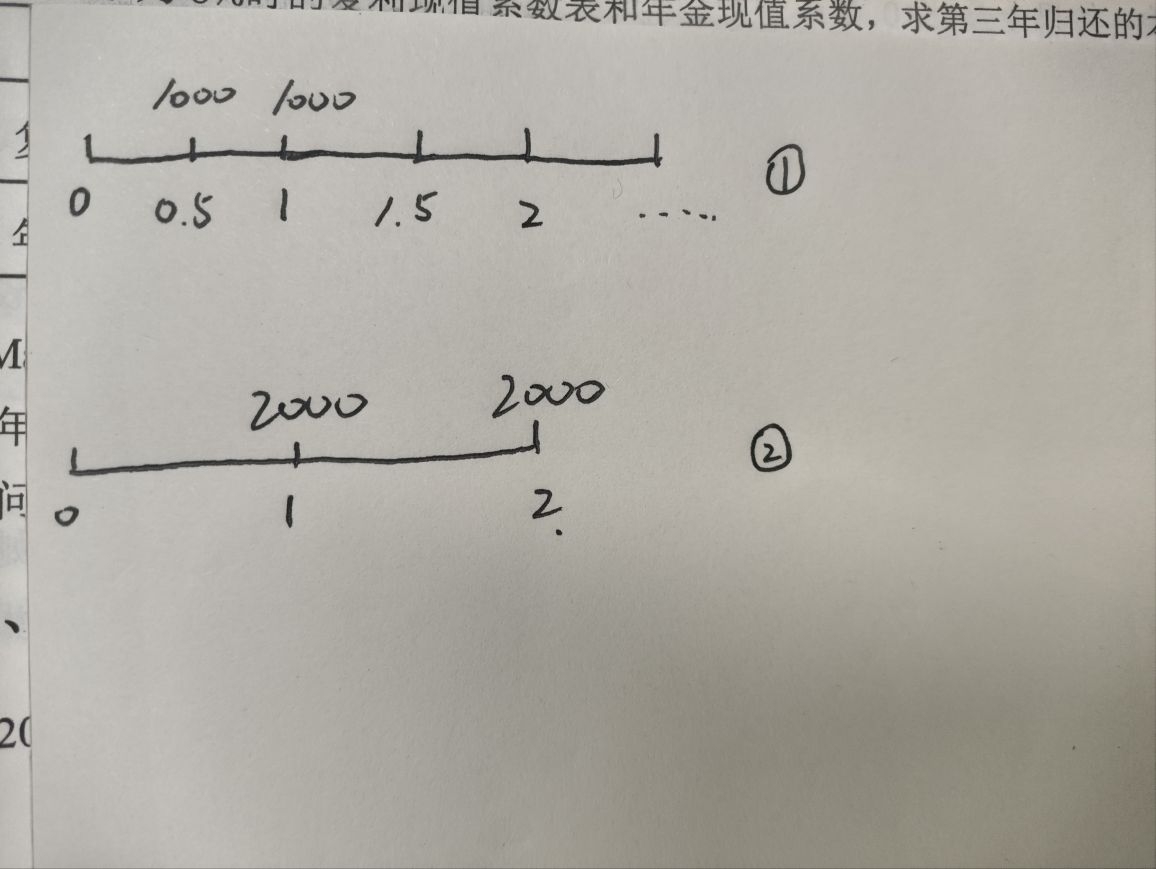 时的复利现值系数表和年金现值系数，求第三年归还的
1000 1000
0 0.5 1 1.5 2 .....
①
2000 2000
②
0 1 2.
年
问
、
20